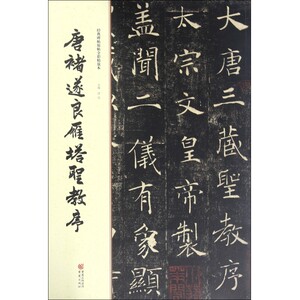 唐褚遂良雁塔聖教序
大唐三藏聖教序
太宗文皇帝製
蓋聞二儀有象顯